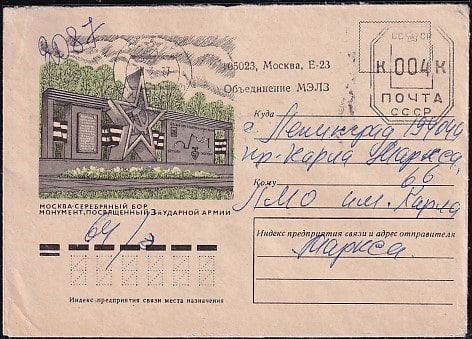 9087
105023, Москва, Е-23
Объединение МЭЛЗ
СССР
К 004 К
ПОЧТА
СССР
Куда
г. Ленинград 194040
пр. Карла Маркса,
66
Кому
ЛМО им. Карла
Маркса.
МОСКВА-СЕРЕБРЯНЫЙ БОР
МОНУМЕНТ, ПОСВЯЩЕННЫЙ 3-й УДАРНОЙ АРМИИ
64/
Индекс предприятия связи и адрес отправителя
Индекс предприятия связи места назначения